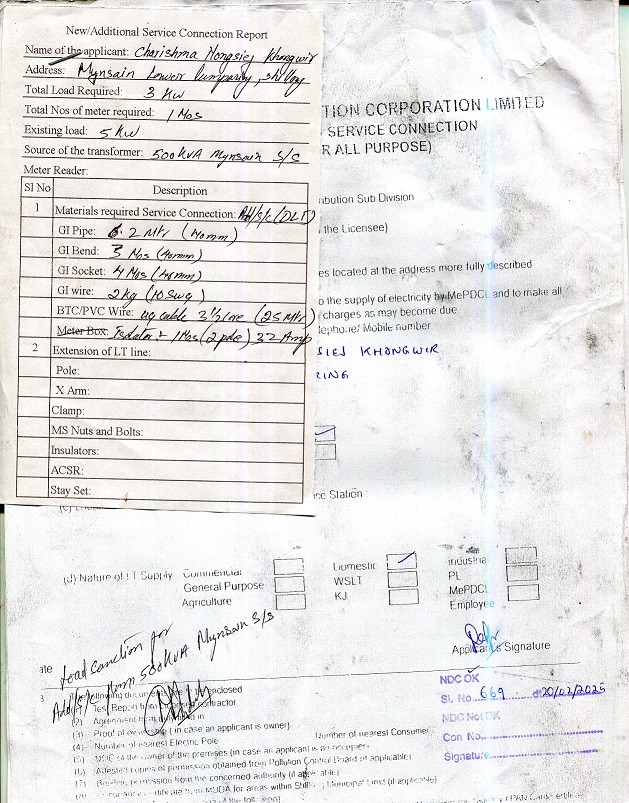 New/Additional Service Connection Report
Name of the applicant: Charishma Nongsiej Khongwir
Address: Mynsain Lower Lumparing, Shillong
Total Load Required: 3 KW
Total Nos of meter required: 1 Nos
Existing load: 5 KW
Source of the transformer: 500KVA Mynsain S/S
Meter Reader:
Sl No Description
1 Materials required Service Connection: Add/S/C (DLT)
GI Pipe: 6.2 Mtr (40mm)
GI Bend: 3 Nos (40mm)
GI Socket: 4 Nos (40mm)
GI wire: 2kg (10 Swg)
BTC/PVC Wire: ug cable 3½ core (25 Mtr)
Meter Box: Isolator - 1 Nos (2 pole) 32 Amp
2 Extension of LT line:
Pole:
X Arm:
Clamp:
MS Nuts and Bolts:
Insulators:
ACSR:
Stay Set:
TION CORPORATION LIMITED
SERVICE CONNECTION
R ALL PURPOSE)
ibution Sub Division
the Licensee)
es located at the address more fully described
o the supply of electricity by MePDCL and to make all
charges as may become due
lephone/ Mobile number
SIEJ KHONGWIR
RING
ice Station :
(d) Nature of LT Supply Commercial Domestic Industrial
General Purpose WSLT PL
Agriculture KJ MePDCL
Employee
ate
Load sanction for
Add/S/C from 500KVA Mynsain S/S
Applicant's Signature
NDC OK
Sl. No. 669 dt 20/02/2025
NDC Not OK
Con No.
Signature
3 The following documents are enclosed
(1) Test Report from licensed contractor
(2) Agreement form
(3) Proof of ownership (in case an applicant is owner)
(4) Number of nearest Electric Pole Number of nearest Consumer
(5) NOC of the owner of the premises (in case an applicant is
(6) Attested copies of permission obtained from Pollution Control Board (if applicable)
(7) Building permission from the concerned authority (if applicable)
from MUDA for areas within Shillong Municipal Limit (if applicable)